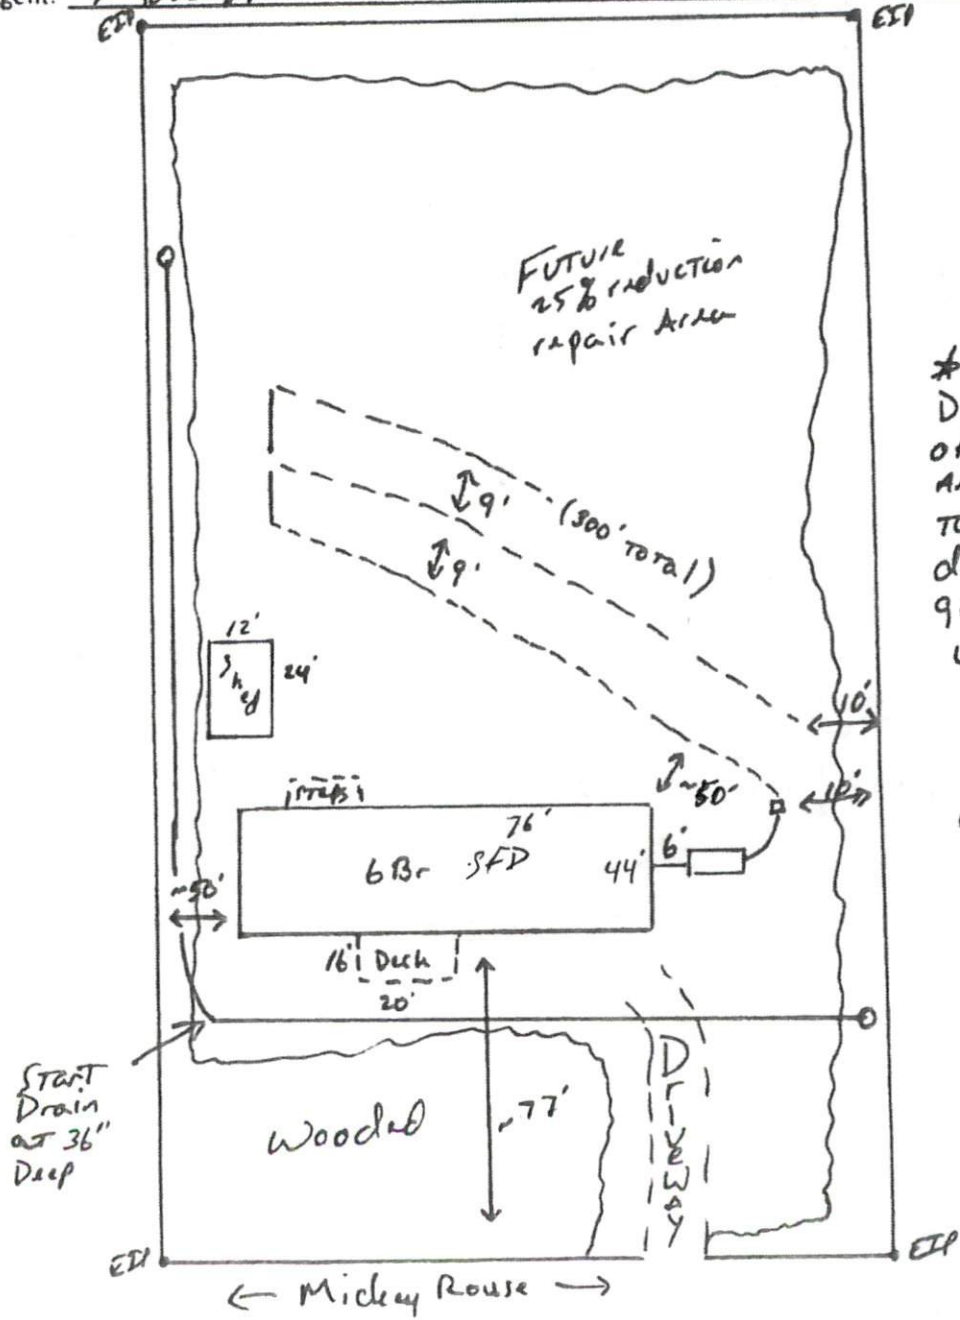 EIP
EIP
Future
25% reduction
repair Area
9'
(300' Total)
9'
12'
Shed
24'
10'
steps
~50'
10'
76'
6 Br SFD
44'
6'
~50'
16' Deck
20'
Start
Drain
at 36"
Deep
Wooded
~77'
Driveway
EIP
EIP
← Mickey Rouse →
*
D